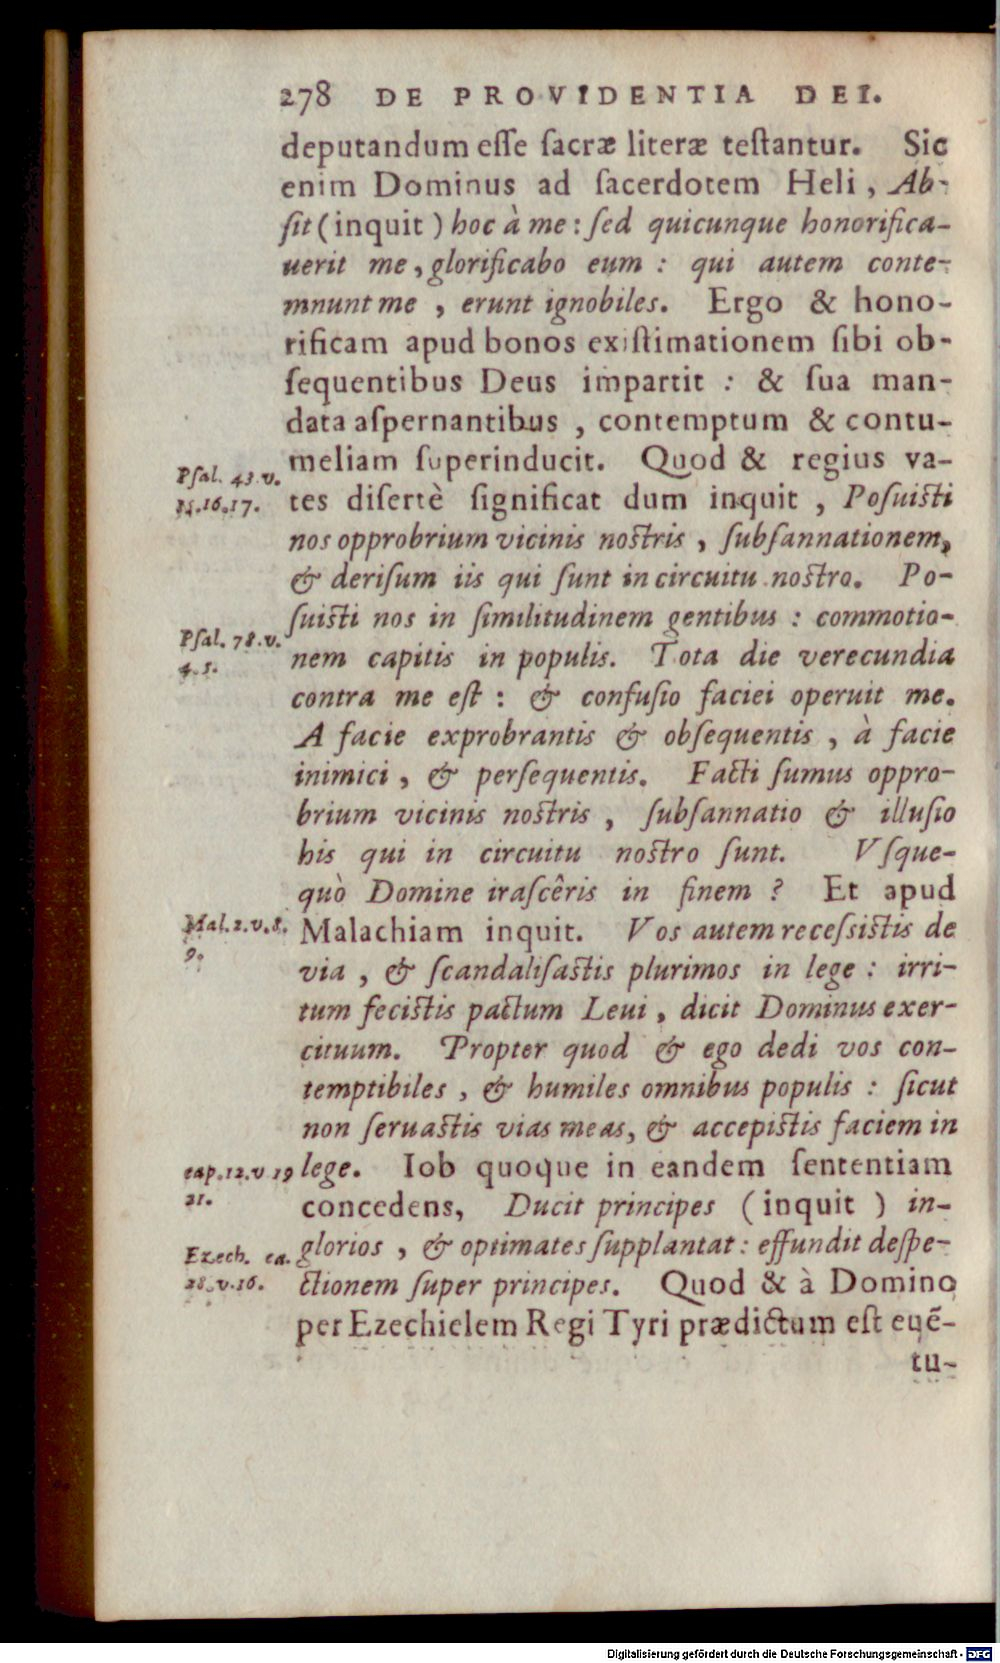 278 DE PROVIDENTIA DEI.
deputandum esse sacræ literæ testantur. Sic
enim Dominus ad sacerdotem Heli, Ab-
sit (inquit) hoc à me: sed quicunque honorifica-
uerit me, glorificabo eum: qui autem conte-
mnunt me, erunt ignobiles. Ergo & hono-
rificam apud bonos existimationem sibi ob-
sequentibus Deus impartit: & sua man-
data aspernantibus, contemptum & contu-
meliam superinducit. Quod & regius va-
Psal. 43. v.
15.16.17.
tes disertè significat dum inquit, Posuisti
nos opprobrium vicinis nostris, subsannationem,
& derisum iis qui sunt in circuitu nostro. Po-
suisti nos in similitudinem gentibus: commotio-
Psal. 78. v.
4.5.
nem capitis in populis. Tota die verecundia
contra me est: & confusio faciei operuit me.
A facie exprobrantis & obsequentis, à facie
inimici, & persequentis. Facti sumus oppro-
brium vicinis nostris, subsannatio & illusio
his qui in circuitu nostro sunt. Vsque-
quò Domine irascêris in finem? Et apud
Mal. 2. v. 8.
9.
Malachiam inquit. Vos autem recessistis de
via, & scandalisastis plurimos in lege: irri-
tum fecistis pactum Leui, dicit Dominus exer-
cituum. Propter quod & ego dedi vos con-
temptibiles, & humiles omnibus populis: sicut
non seruastis vias meas, & accepistis faciem in
cap. 12. v 19
21.
lege. Iob quoque in eandem sententiam
concedens, Ducit principes (inquit) in-
glorios, & optimates supplantat: effundit despe-
Ezech. ca.
28. v. 16.
ctionem super principes. Quod & à Domino
per Ezechielem Regi Tyri prædictum est euẽ-
tu-
Digitalisierung gefördert durch die Deutsche Forschungsgemeinschaft - DFG